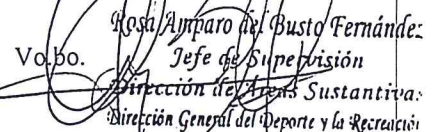 Rosa Amparo del Busto Fernández
Vo.bo. Jefe de Supervisión
Dirección de Áreas Sustantivas
Dirección General del Deporte y la Recreación